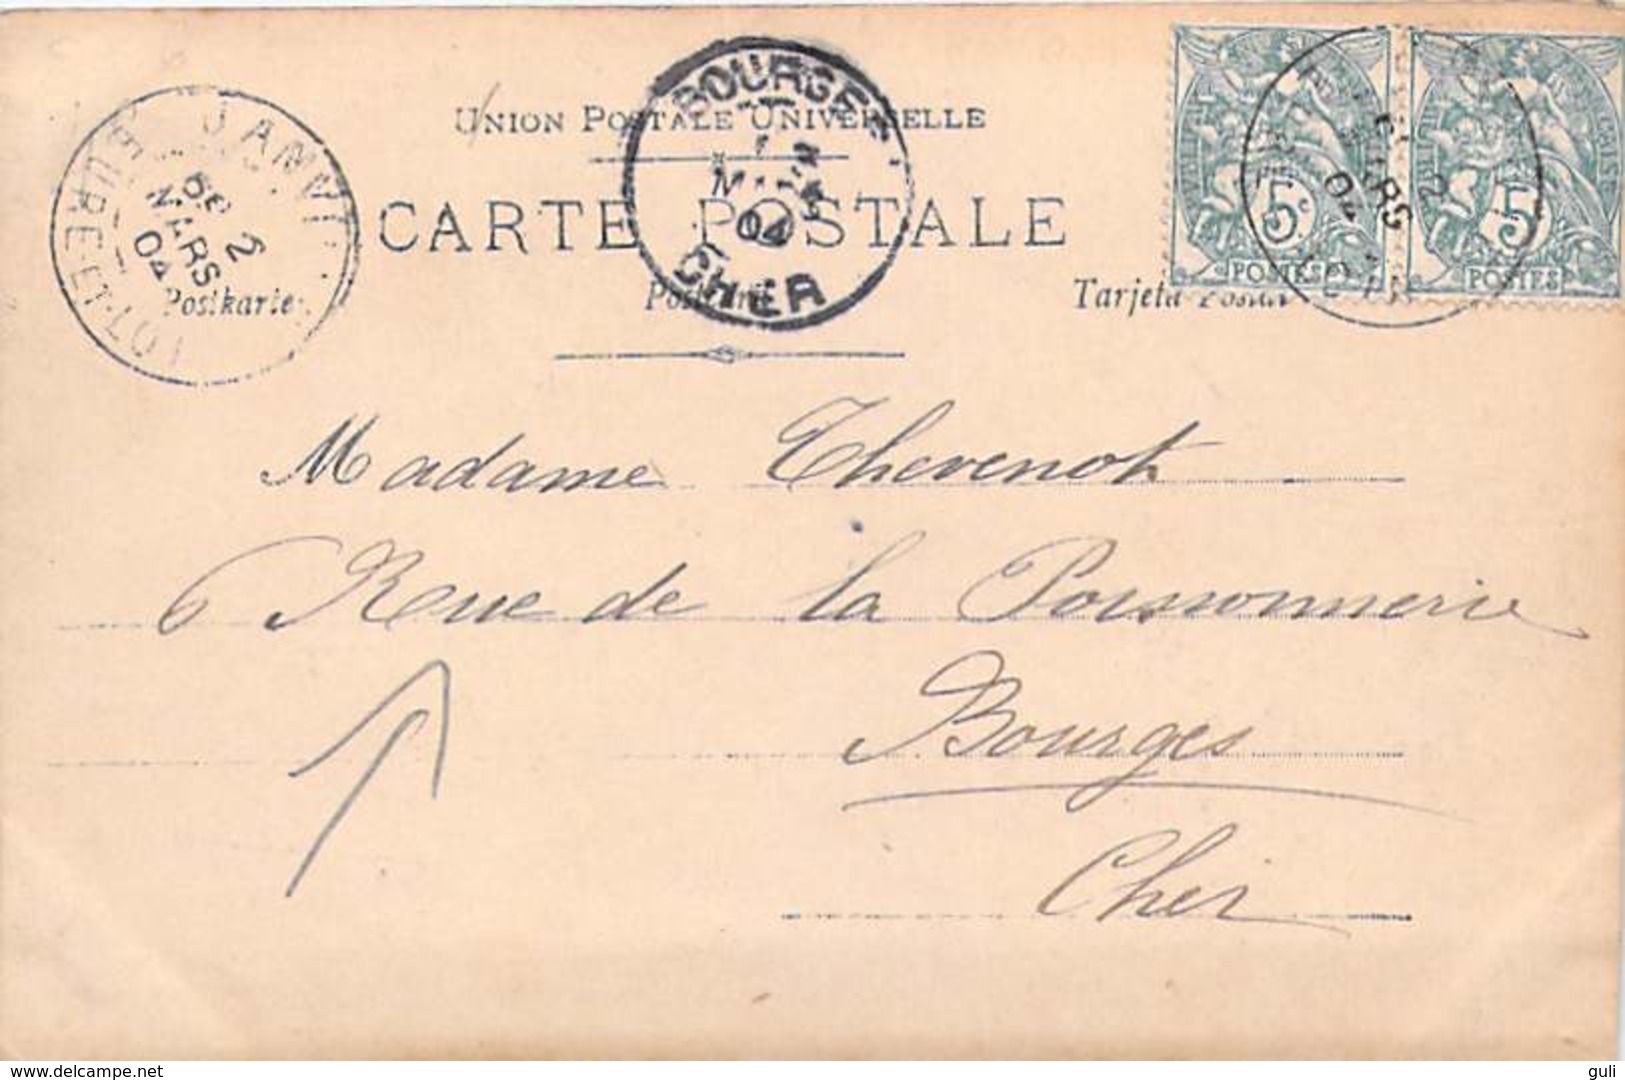 UNION POSTALE UNIVERSELLE
CARTE POSTALE
Postkarte
Tarjeta Postal
BOURGES
04
CHER
EURE-ET-LOIR
2
MARS
04
5c
POSTES
5
POSTES
Madame Thevenot
6 Rue de la Poissonnerie
Bourges
Cher
© delcampe.net
guli